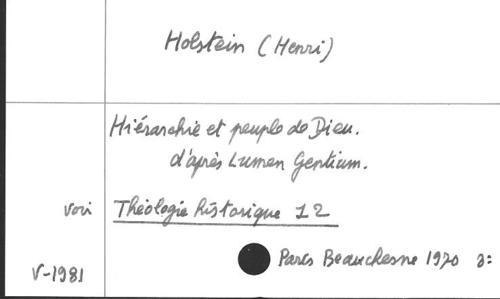 Holstein (Henri)
Hiérarchie et peuple de Dieu.
d'après Lumen Gentium.
voir Théologie historique 12
Paris Beauchesne 1970 8=
V-1981